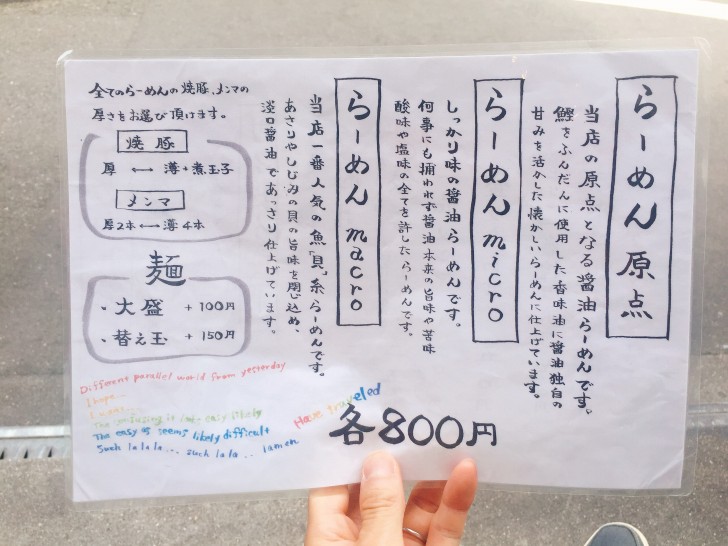 らーめん 原点
当店の原点となる醤油らーめんです。
鰹をふんだんに使用した香味油に醤油独自の
甘みを活かした懐かしいらーめんに仕上げています。
らーめん micro
しっかり味の醤油らーめんです。
何事にも捕われず醤油本来の旨味や苦味
酸味や塩味の全てを許したらーめんです。
らーめん macro
当店一番人気の魚「貝」系らーめんです。
あさりやしじみの貝の旨味を閉じ込め、
淡口醤油であっさり仕上げています。
全てのらーめんの焼豚、メンマの
厚さをお選び頂けます。
焼豚
厚 ⟷ 薄+煮玉子
メンマ
厚2本⟷薄4本
麺
・大盛 +100円
・替え玉 +150円
Different parallel world from yesterday
I hope...
The confusing is easy likely
The easy as seems likely difficult
Such lalala... such lala.. lamen
Have traveled
各800円